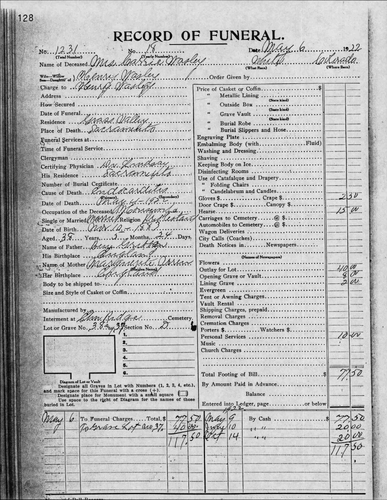 128
RECORD OF FUNERAL.
No. 1231 No. 18 Date May 6 1922
(Total Number) (Yearly Number)
Name of Deceased Mrs Carrie Wasley White Colorado
(What Race) (Where Born)
Henry Wasley Order Given by
Charge to Henry Wasley
Address
How Secured
Date of Funeral
Residence Grass Valley
Place of Death Sacramento
Funeral Services at
Time of Funeral Service
Clergyman
Certifying Physician
His Residence Sacramento
Number of Burial Certificate
Cause of Death Endocarditis
Date of Death May 4
Occupation of the Deceased Housewife
Single or Married Married Religion
Date of Birth Nov 10 - 1883
Aged 38 Years, Months, 24 Days
Name of Father
His Birthplace England
Name of Mother
Her Birthplace England
Body to be shipped to
Size and Style of Casket or Coffin
Manufactured by
Interment at Elm Ridge Cemetery
Lot or Grave No. 38 37 Section No. D
1
2
3
4
5
6
Diagram of Lot or Vault
Designate all Graves in Lot with Numbers (1, 2, 3, 4, etc.)
and mark space for this Funeral with a cross (+).
Designate place for Monument with a small square
Use space to the right of Diagram for the names of those
buried in Lot.
Price of Casket or Coffin
" Metallic Lining
(State kind)
" Outside Box
(State kind)
" Grave Vault
(State kind)
" Burial Robe
(State kind)
" Burial Slippers and Hose
Engraving Plate
Embalming Body (with Fluid)
Washing and Dressing
Shaving
Keeping Body on Ice
Disinfecting Rooms
Use of Catafalque and Drapery
" Folding Chairs
" Candelabrum and Candles
Gloves $ Crape $ 2 50
Door Crape $ Canopy $
Hearse 15 00
Carriages to Cemetery @ $
Automobiles to Cemetery @ $
Wagon Deliveries
City Calls (Coaches)
Death Notices in Newspapers
(Names of Newspapers)
Flowers
Outlay for Lot 40 00
Opening Grave or Vault 8 00
Lining Grave 2 00
Evergreen
Tent or Awning Charges
Vault Rental
Shipping Charges, prepaid
Removal Charges
Cremation Charges
Porters $ Watchers $
Personal Services 10 00
Music
Church Charges
Total Footing of Bill $ 77.50
By Amount Paid in Advance
Balance
Entered into Ledger, page or below.
May 6 To Funeral Charges, Total $ 77 50 May 9 By Cash $ 77 50
To Grave Lot no. 37. 40 00 July 10 " " 20 00
117.50 Oct 14 " " 20 00
117.50